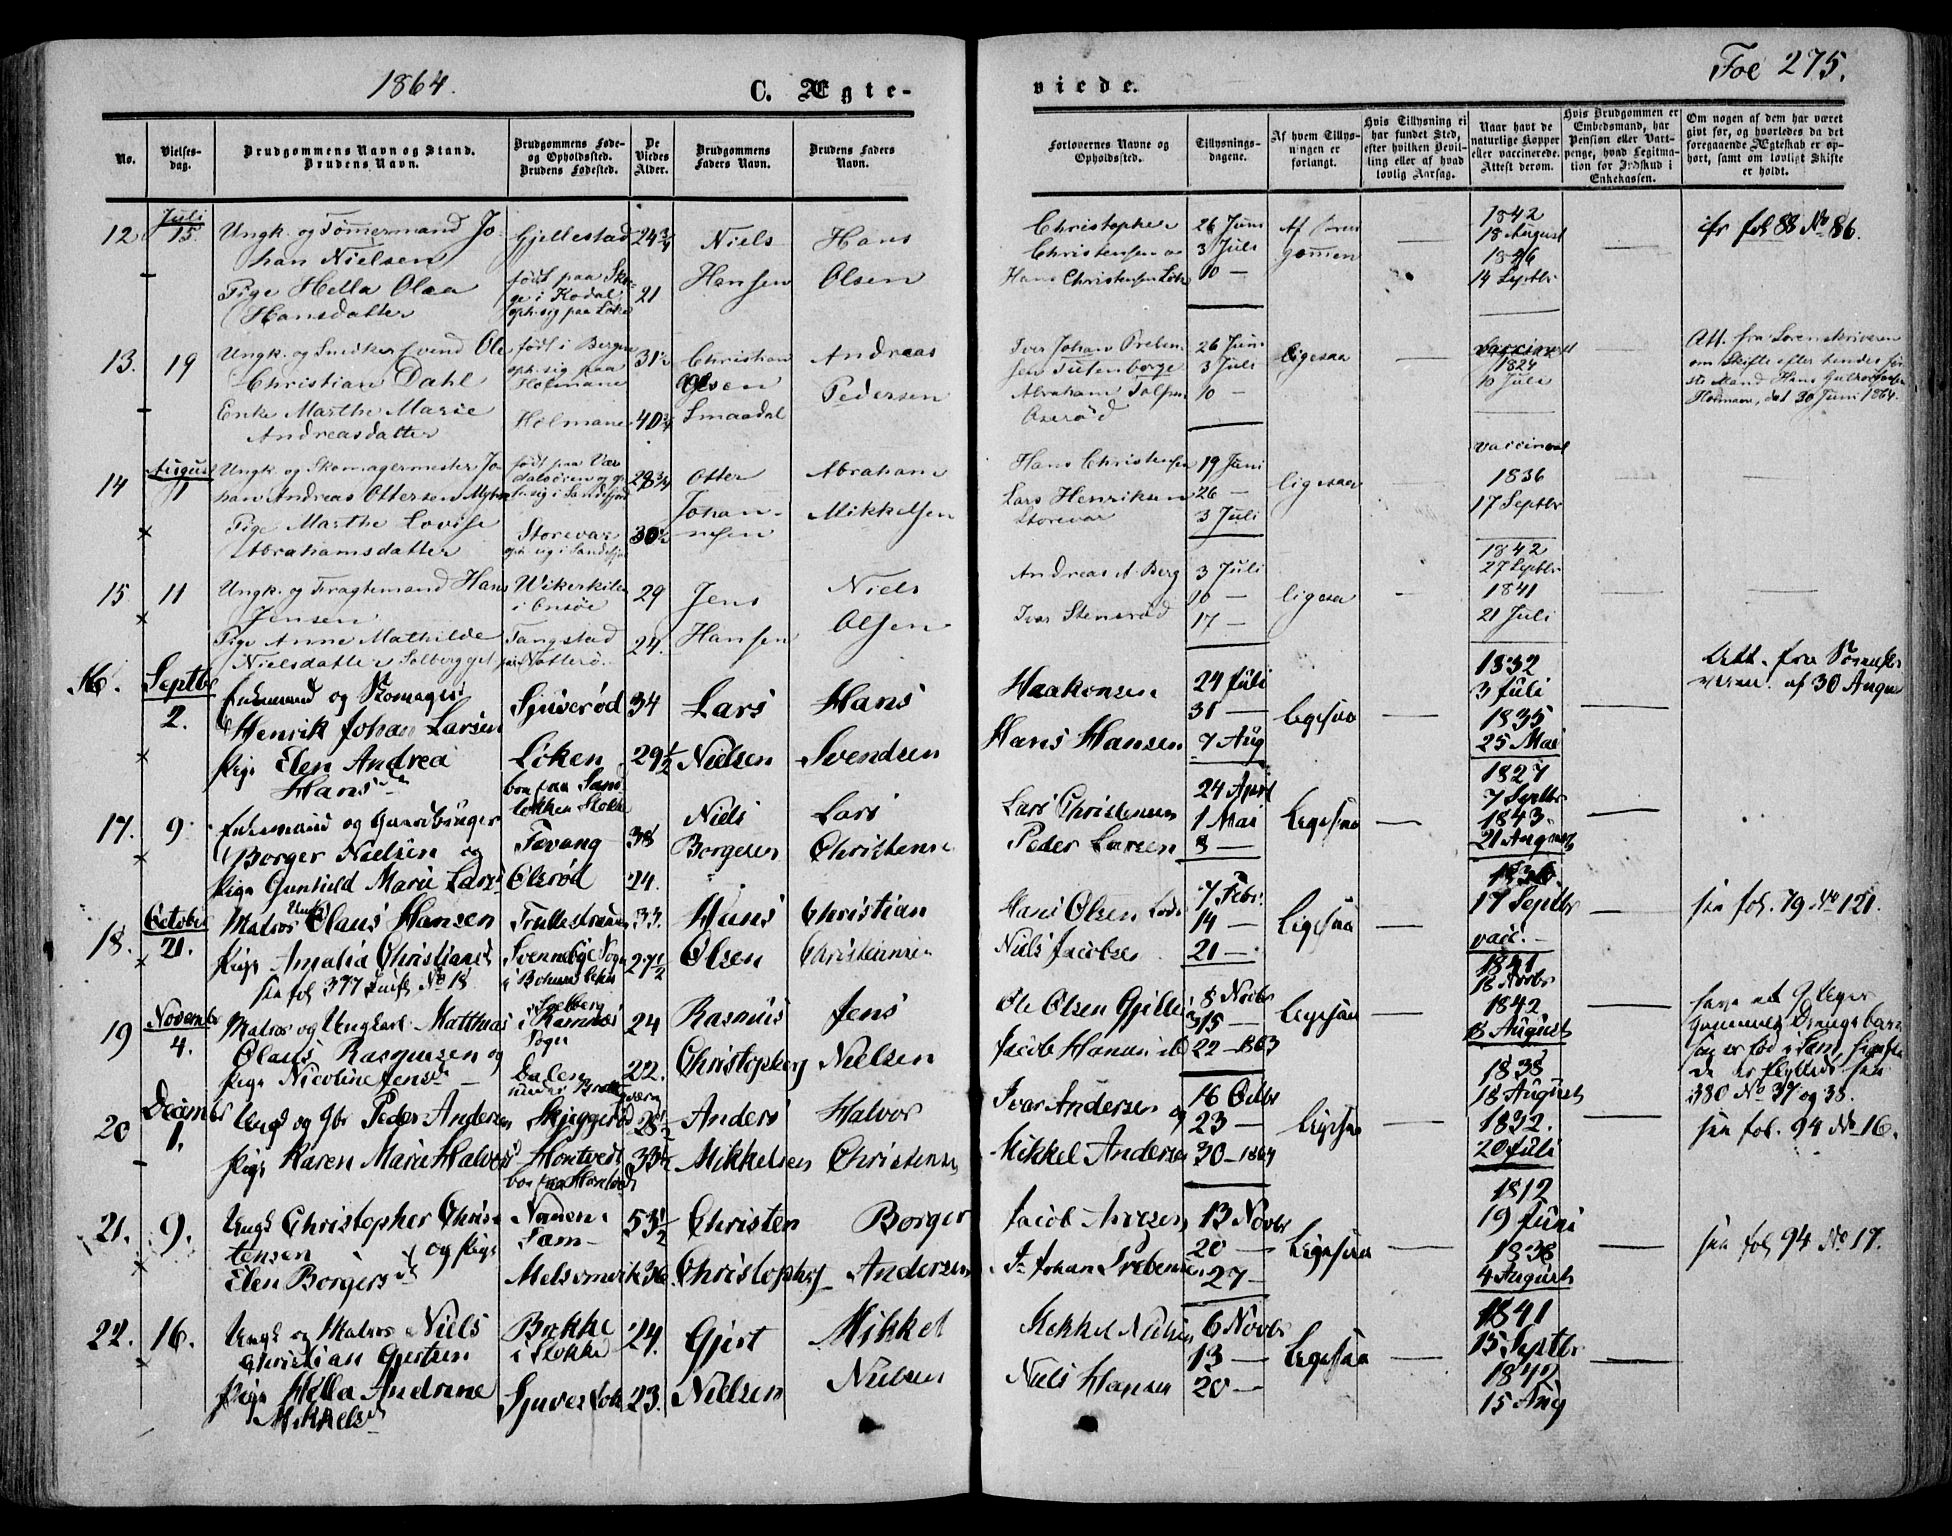 1864.
C. Ægte-
No.
Vielses-
dag.
Brudgommens Navn og Stand.
Brudens Navn.
Brudgommens Føde-
og Opholdssted.
Brudens Fødested.
De
Viedes
Alder.
Brudgommens
Faders Navn.
Brudens Faders
Navn.
12
Juli
15.
Ungk. og Tømmermand Jo-
han Nielsen
Pige Hella Olaa
Hansdatter
Gjellestad
født paa Sko-
ge i Kodal,
oph. sig paa Løke
24 3/4
21
Niels
Hansen
Hans
Olsen
13.
19
Ungk. og Snedker Evend Ole
Christian Dahl
Enke Marthe Marie
Andreasdatter
født i Bergen
oph. sig paa
Holmane
Holmane
31 1/2
40 3/4
Christian
Olsen
Smaadal
Andreas
Pedersen
14
August
11
Ungk. og Skomagermester Jo-
han Andreas Ottersen
Pige Marthe Lovise
Abrahamsdatter
født paa Vær
dalsøren og op-
h. sig i Sandefjord
Storevar
oph. sig i Sandefjord
28 3/4
30 1/2
Otter
Johan-
nesen
Abraham
Mikkelsen
15
11
Ungk. og Fragtemand Hans
Jensen
Pige Anne Mathilde
Nielsdatter Solberg
Wikerkilen
i Onsøe
Tangstad
paa Nøtterø.
29
24.
Jens
Hansen
Niels
Olsen
16.
Septbr
2.
Enkemand og Skomager
Henrik Johan Larsen
Pige Elen Andrea
Hansd
Sjuverød
Løken
34
29 1/2
Lars
Nielsen
Hans
Svendsen
17.
9.
Enkemand og Gaardbruger
Borger Nielsen og
Pige Gunhild Marie Larsd
boe paa Sand
løkken Stokke
Fevang
Olsrød
38
24.
Niels
Borgesen
Lars
Christensen
18.
October
21.
Ungk
Matros Olaus Hansen
Pige Amalia Christiansd
see fol 377 No 18
Trullestraaen
Svenneby Sogn
i Bohuus Lehn
33.
27 1/2
Hans
Olsen
Christian
Christiansen
19
Novembr
4.
Matros og Ungkarl Matthias
Olaus Rasmusen og
Pige Nicoline Jensd
Solberg
i Ramnæs
Sogn
Dalen
under
24
22.
Rasmus
Christophers
Jens
Nielsen
20
Decimbr
1.
Ungk og Gbr Peder Andersen
Pige Karen Marie Halvorsd
Skjeggerød
Hontvedt
boe paa Hontvedt
28 1/2
33 1/2
Anders
Mikkelsen
Halvor
Christensen
21.
9.
Ungk Christopher Chris
tensen og Pige
Elen Borgersd
Namen
Sam
Melsomvik
53 1/2
36
Christen
Christophers
Borger
Andersen
22.
16.
Ungk og Matros Niels
Christian Gjertsen
Pige Hella Andrine
Mikkelsd
Bokke
i Stokke
Sjuvestok
24.
23.
Gjert
Nielsen
Mikkel
Nielsen
Fol 275.
viede.
Forlovernes Navne og
Opholdssted.
Tillysnings-
dagene.
Af hvem Tillys-
ningen er
forlangt.
Hvis Tillysning ei
har fundet Sted,
efter hvilken Bevil-
ling eller af hvad
lovlig Aarsag.
Naar havt de
naturlige Kopper
eller vaccinerede.
Attest derom.
Hvis Brudgommen er
Embedsmand, har
Pension eller Vart-
penge, hvad Legitima-
tion for Indskud i
Enkekassen.
Om nogen af dem har været
gift før, og hvorledes da det
foregaaende Ægteskab er op-
hørt, samt om lovligt Skifte
er holdt.
Christopher
Christensen og
Hans Christensen Løke
26 Juni
3 Juli
10 —
Af Brud
gommen
—
1842
18 August
1846
14 Septbr
—
cfr fol 88 No 86.
Iver Johan Preben-
sen
Abraham Tolfsen
Oserød
26 Juni
3 Juli
10 —
ligesaa
—
vaccineret
1824
10 Juli
Att. fra Sorenskriveren
om Skifte efter hendes før-
ste Mand Hans
Holmane, dat 30 Juni 1864.
Hans Christensen
Lars Henriksen
Storevar
19 Juni
26 —
3 Juli
ligesaa
—
vaccineret
1836
17 Septbr
Andreas A. Berg
Ivar Stensrød
3 Juli
10 —
17 —
ligesaa
—
1842
27 Septbr
1841
21 Juli
Haakonsen
Hans Hansen
24 Juli
31 —
7 Aug
ligesaa
—
1832
3 Juli
1835
25 Mai
—
Att. fra Sorenskri
veren af 30 August
Lars Christensen
Peder Larsen
24 April
1 Mai
8 —
Ligesaa
—
1827
7 Septbr
1843.
21 August
—
Hans Olsen
Niels Jacobsen
7 Febr.
14 —
21 —
Ligesaa
—
1836
17 Septbr
vacc. —
—
see fol. 79 No 121.
Ole Olsen Gjille
Jacob Hansen
8 Novbr
15 —
22 — 1863
Ligesaa
—
1841
16 Novbr
1842
8 August
—
have et 9 Uger
gammel Drengebarn
som er fød i Sam,
de er flyttede see
380 No 37 og 38.
Ivar Andersen og
Mikkel Andersen
16 Octbr
23 —
30 — 1864
Ligesaa
—
1838
18 August
1832.
20 Juli
—
see fol. 94 No 16.
Jacob
Johan Prebensen
13 Novbr
20 —
27 —
Ligesaa
—
1812
19 Juni
1838
4 August
—
see fol 94 No 17.
Mikkel Nielsen
Niels Hansen
6 Novbr
13 —
20 —
Ligesaa
—
1841
15 Septbr
1842
15 Aug
—